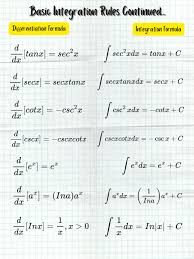 Basic Integration Rules Continued...
Differentiation Formula Integration Formula
d/dx [tanx] = sec²x ∫ sec²xdx = tanx + C
d/dx [secx] = secxtanx ∫ secxtanxdx = secx + C
d/dx [cotx] = -csc²x ∫ csc²xdx = -cotx + C
d/dx [cscx] = -cscxcotx ∫ cscxcotxdx = -cscx + C
d/dx [eˣ] = eˣ ∫ eˣdx = eˣ + C
d/dx [aˣ] = (Ina)aˣ ∫ aˣdx = (1/Ina) aˣ + C
d/dx [Inx] = 1/x, x > 0 ∫ 1/x dx = In|x| + C